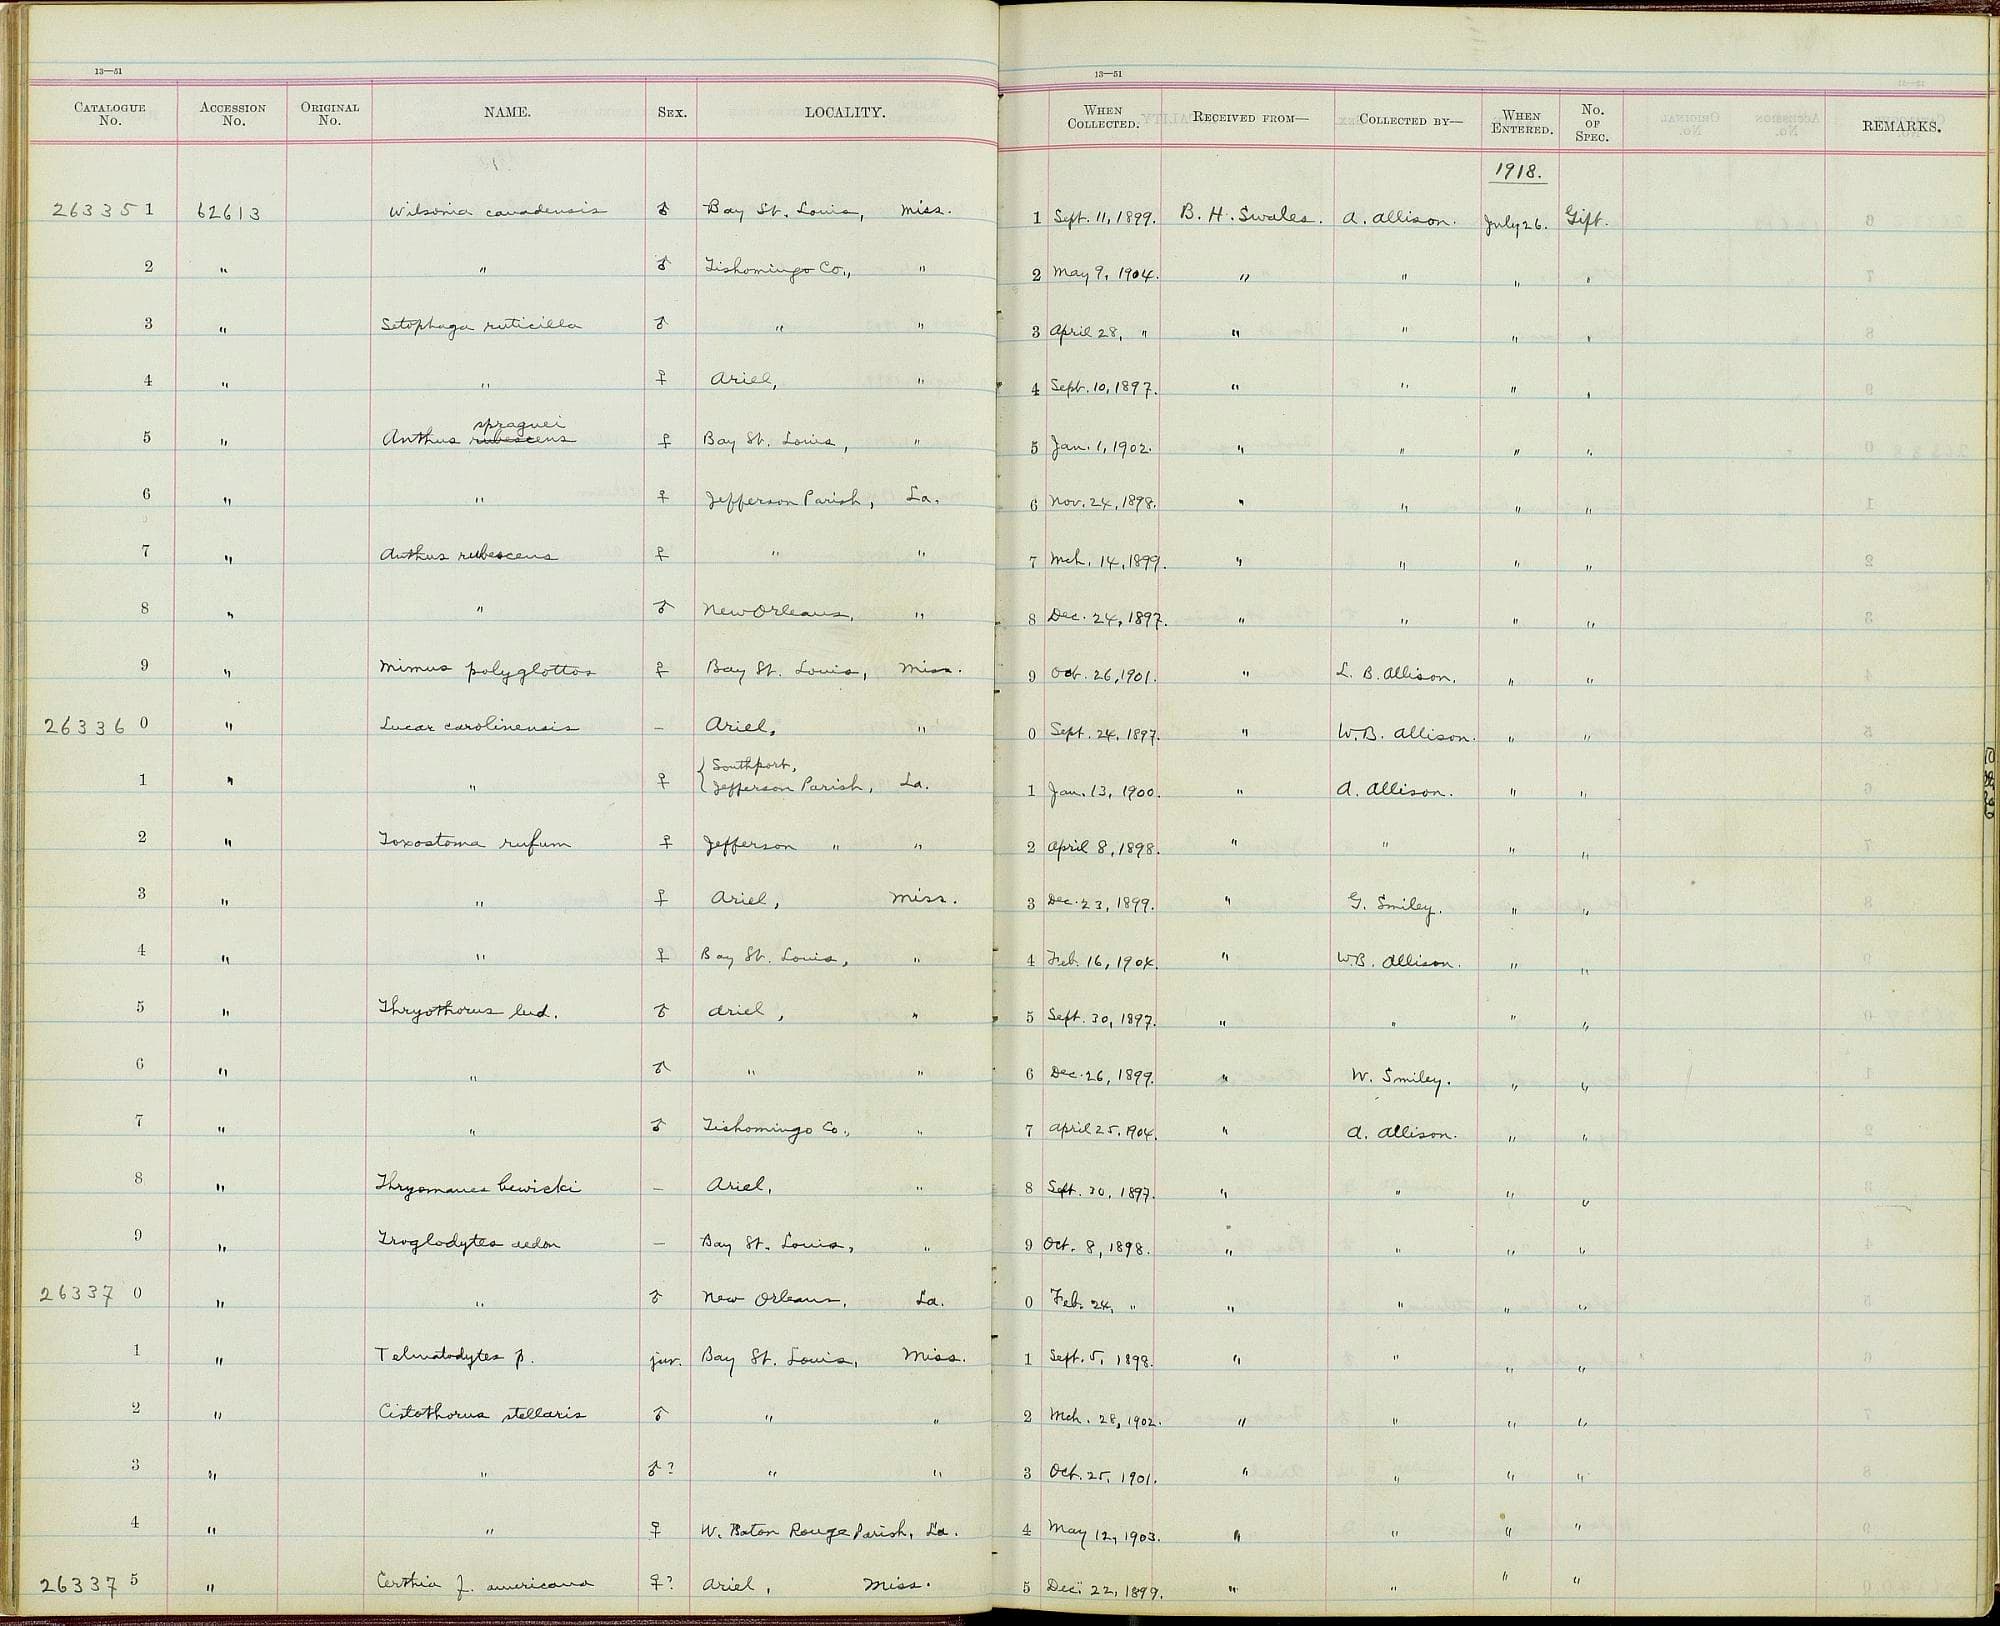 13—51
CATALOGUE No. ACCESSION No. ORIGINAL No. NAME. SEX. LOCALITY.
263351 62613 Wilsonia canadensis ♂ Bay St. Louis, Miss.
2 " " ♂ Tishomingo Co., "
3 " Setophaga ruticilla ♂ " "
4 " " ♀ Ariel, "
spraguei
5 " Anthus rubescens ♀ Bay St. Louis, "
6 " " ♀ Jefferson Parish, La.
7 " Anthus rubescens ♀ " "
8 " " ♂ New Orleans, "
9 " Mimus polyglottos ♀ Bay St. Louis, Miss.
263360 " Lucar carolinensis — Ariel, "
Southport,
1 " " ♀ Jefferson Parish, La.
2 " Toxostoma rufum ♀ Jefferson " "
3 " " ♀ Ariel, Miss.
4 " " ♀ Bay St. Louis, "
5 " Thryothorus lud. ♂ Ariel, "
6 " " ♂ " "
7 " " ♂ Tishomingo Co., "
8 " Thryomanes bewicki — Ariel, "
9 " Troglodytes aedon — Bay St. Louis, "
263370 " " ♂ New Orleans, La.
1 " Telmatodytes p. juv. Bay St. Louis, Miss.
2 " Cistothorus stellaris ♂ " "
3 " " ♂? " "
4 " " ♀ W. Baton Rouge Parish, La.
263375 " Certhia f. americana ♀? Ariel, Miss.
13—51
WHEN COLLECTED. RECEIVED FROM— COLLECTED BY— WHEN ENTERED. No. OF SPEC. REMARKS.
1918.
1 Sept. 11, 1899. B. H. Swales. A. Allison. July 26. Gift.
2 May 9, 1904. " " " "
3 April 28, " " " " "
4 Sept. 10, 1897. " " " "
5 Jan. 1, 1902. " " " "
6 Nov. 24, 1898. " " " "
7 Mch. 14, 1899. " " " "
8 Dec. 24, 1897. " " " "
9 Oct. 26, 1901. " L. B. Allison. " "
0 Sept. 24, 1897. " W. B. Allison. " "
1 Jan. 13, 1900. " A. Allison. " "
2 April 8, 1898. " " " "
3 Dec. 23, 1899. " G. Smiley. " "
4 Feb. 16, 1904. " W.B. Allison. " "
5 Sept. 30, 1897. " " " "
6 Dec. 26, 1899. " W. Smiley. " "
7 April 25, 1904. " A. Allison. " "
8 Sept. 30, 1897. " " " "
9 Oct. 8, 1898. " " " "
0 Feb. 24, " " " " "
1 Sept. 5, 1898. " " " "
2 Mch. 28, 1902. " " " "
3 Oct. 25, 1901. " " " "
4 May 12, 1903. " " " "
5 Dec. 22, 1899. " " " "